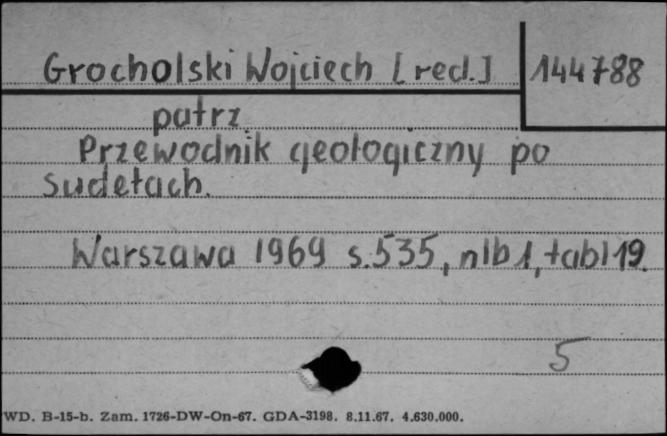 Grocholski Wojciech [red.] 144788
patrz
Przewodnik geologiczny po
Sudetach.
Warszawa 1969 s.535, nlb 1, tabl 19.
5
WD. B-15-b. Zam. 1726-DW-On-67. GDA-3198. 8.11.67. 4.630.000.